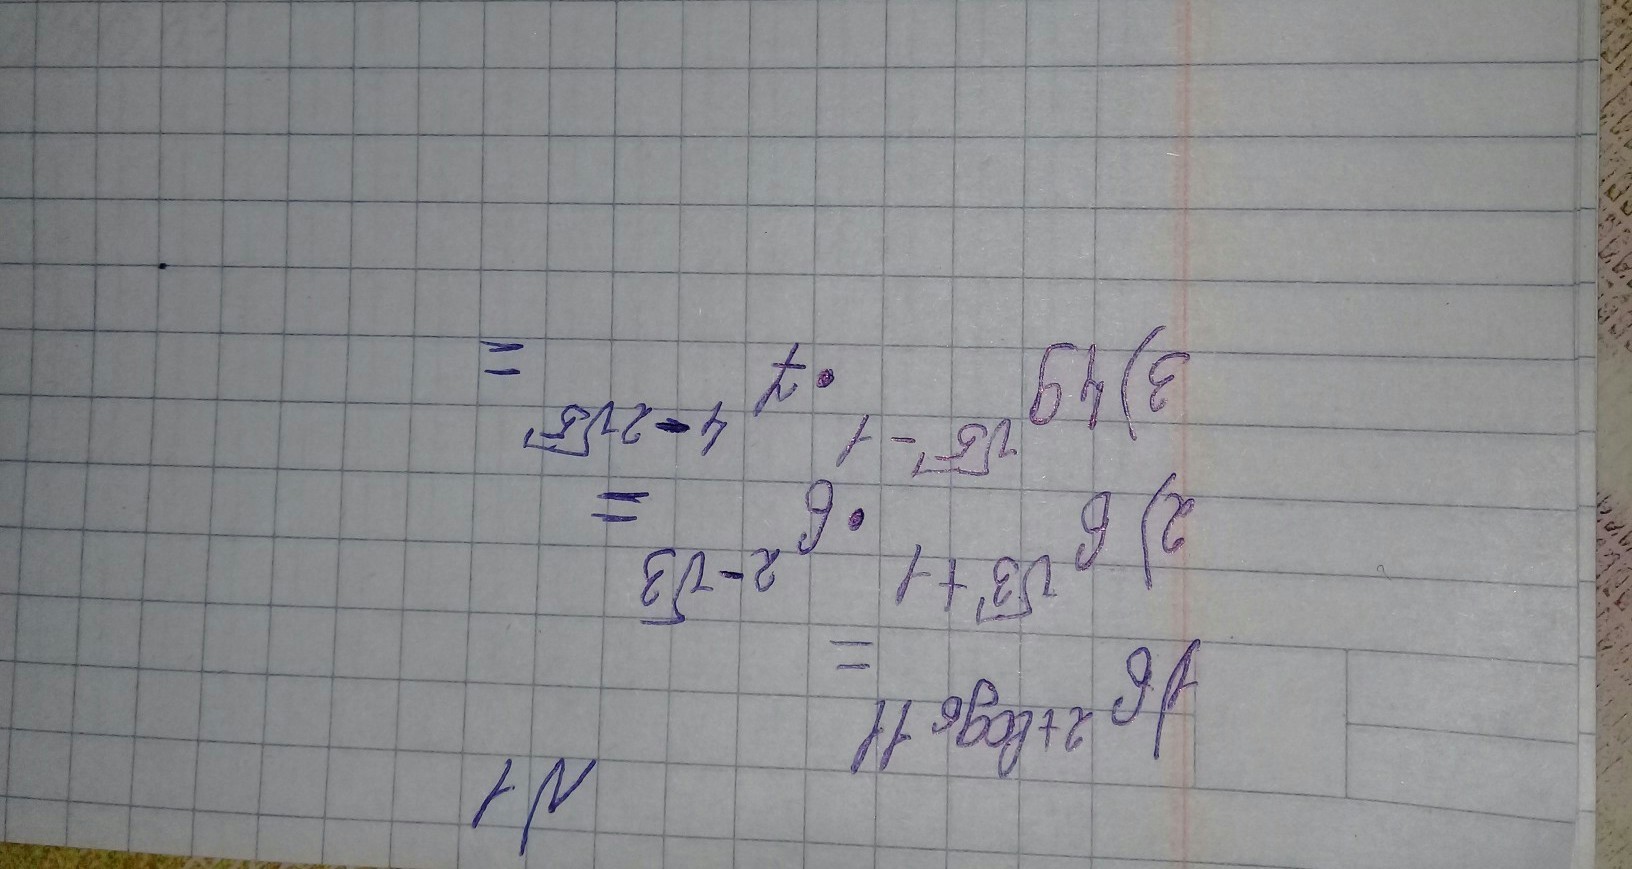 N 1
1) 6^{2+log₆ 11} =
2) 6^{√3+1} · 6^{2-√3} =
3) 49^{√5-1} · 7^{4-2√5} =